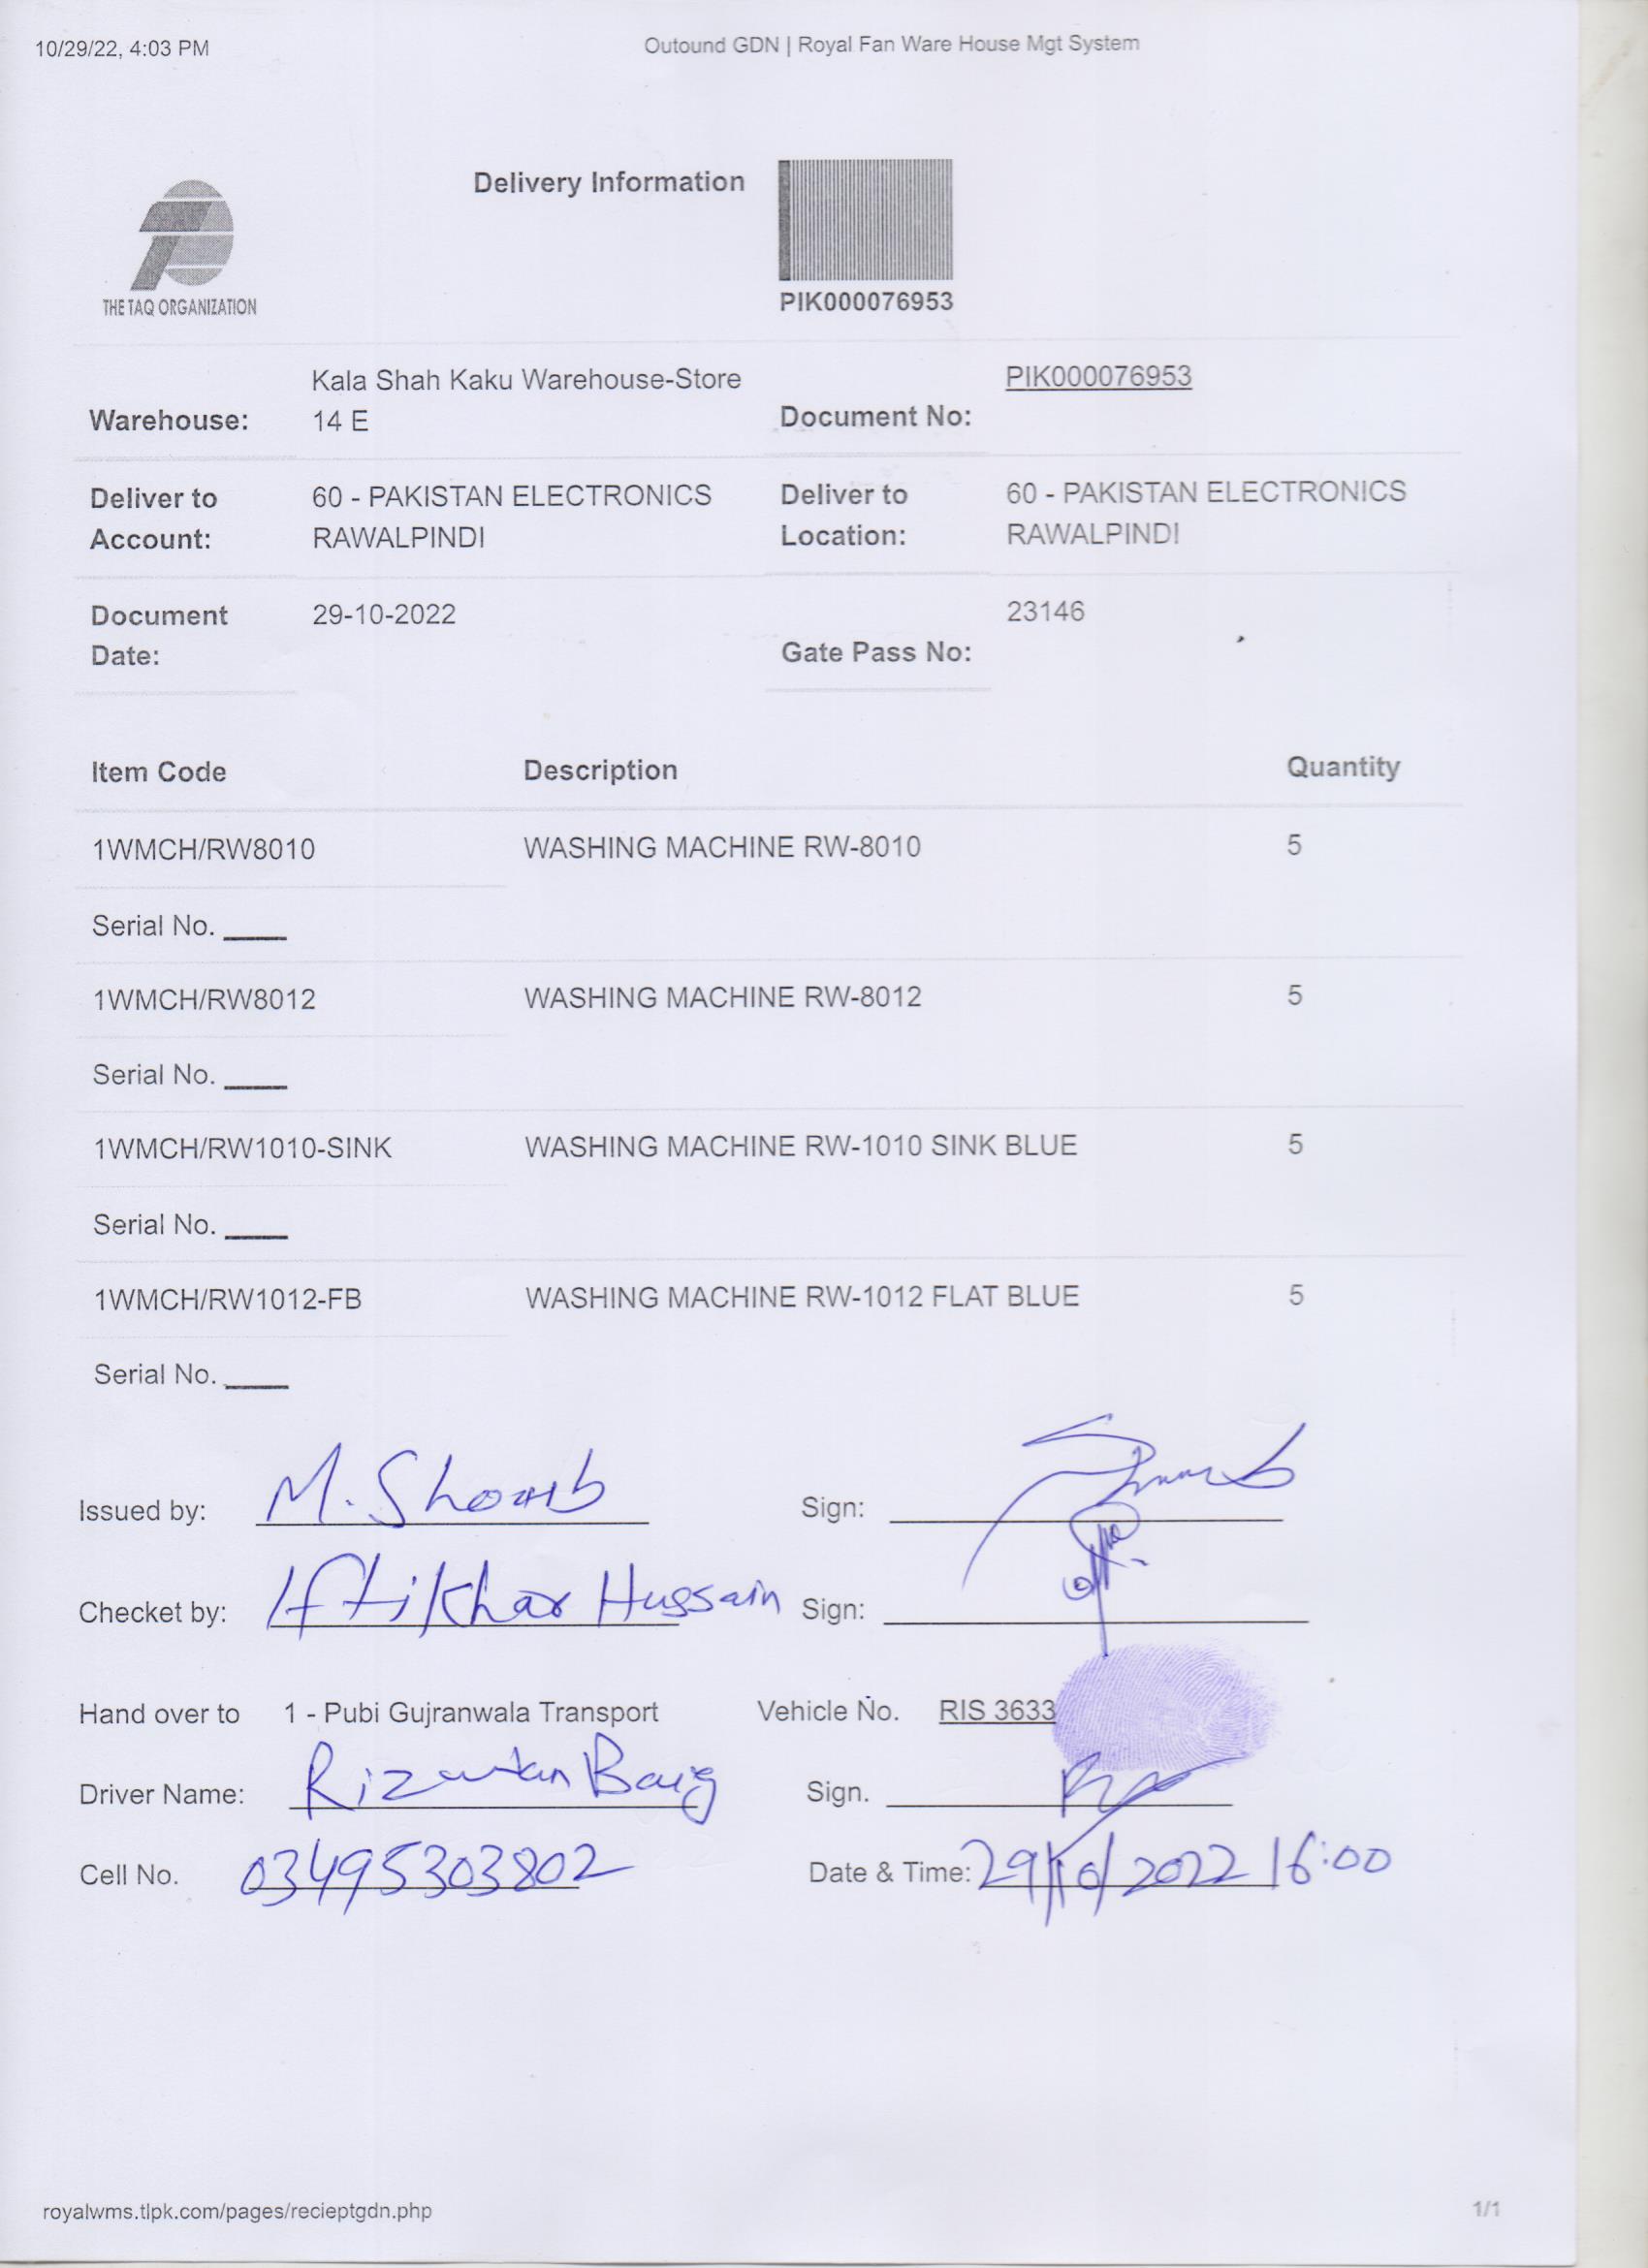 10/29/22, 4:03 PM
Outound GDN | Royal Fan Ware House Mgt System
Delivery Information
THE TAQ ORGANIZATION
PIK000076953
Kala Shah Kaku Warehouse-Store
PIK000076953
Warehouse: 14 E Document No:
Deliver to 60 - PAKISTAN ELECTRONICS Deliver to 60 - PAKISTAN ELECTRONICS
Account: RAWALPINDI Location: RAWALPINDI
Document 29-10-2022 23146
Date: Gate Pass No:
Item Code Description Quantity
1WMCH/RW8010 WASHING MACHINE RW-8010 5
Serial No. ____
1WMCH/RW8012 WASHING MACHINE RW-8012 5
Serial No. ____
1WMCH/RW1010-SINK WASHING MACHINE RW-1010 SINK BLUE 5
Serial No. ____
1WMCH/RW1012-FB WASHING MACHINE RW-1012 FLAT BLUE 5
Serial No. ____
Issued by: M. Shoaib Sign:
Checket by: Iftikhar Hussain Sign:
Hand over to 1 - Pubi Gujranwala Transport Vehicle No. RIS 3633
Driver Name: Rizwan Baig Sign.
Cell No. 03495303802 Date & Time: 29/10/2022 16:00
royalwms.tlpk.com/pages/recieptgdn.php 1/1